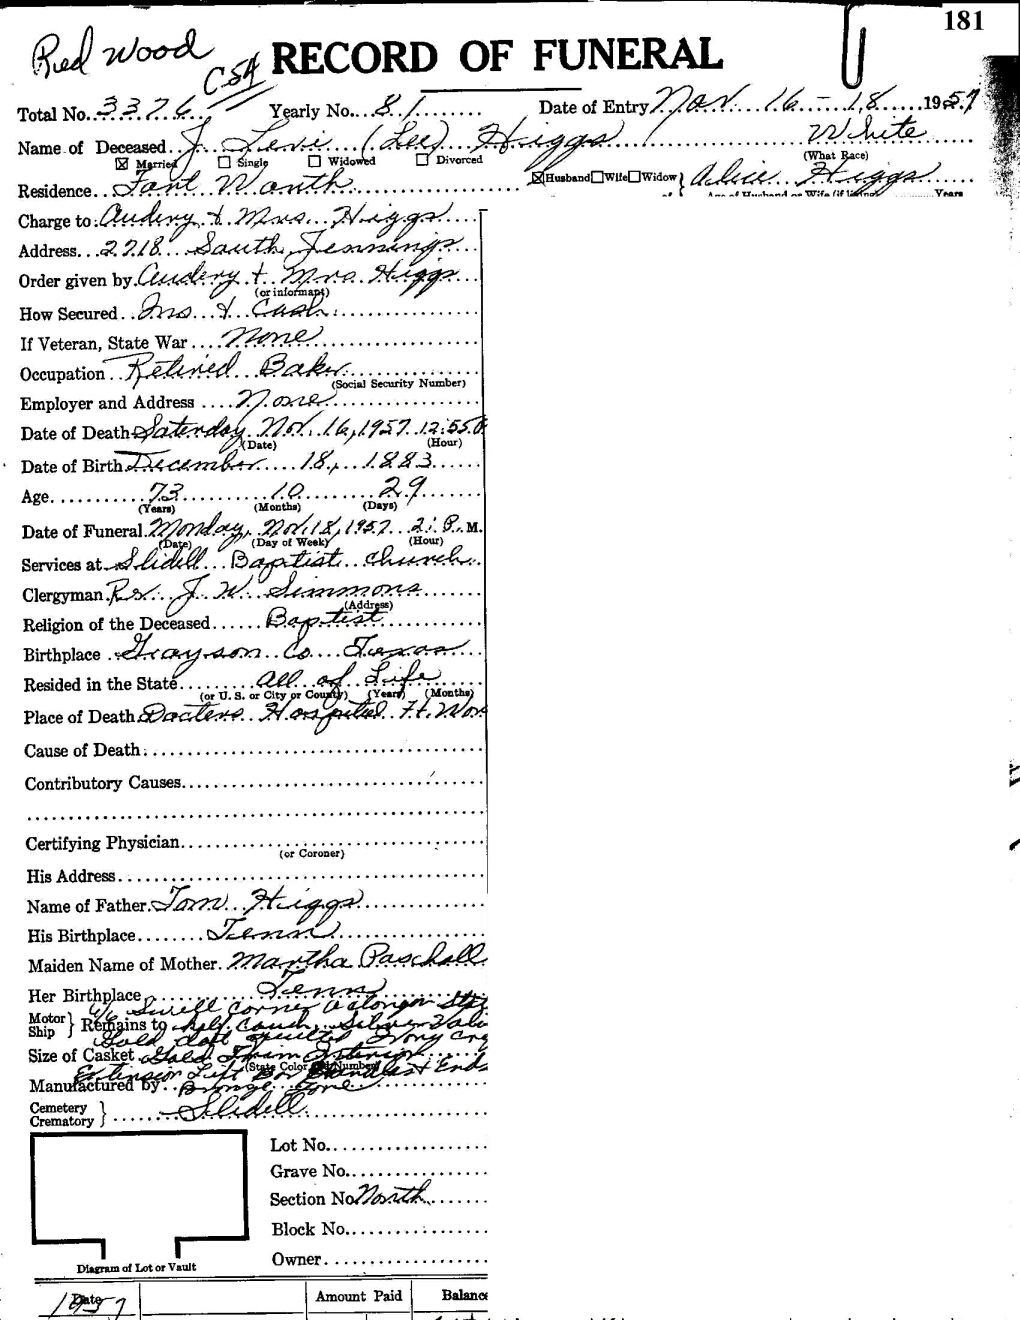 181
Red Wood
C54
RECORD OF FUNERAL
Total No. 3376 Yearly No. 81 Date of Entry Nov. 16-18 1957
Name of Deceased J. Levi (Lee) Higgs White
☒ Married ☐ Single ☐ Widowed ☐ Divorced (What Race)
Residence Fort Worth ☒Husband☐Wife☐Widow} Alice Higgs
of Age of Husband or Wife (if living) Years
Charge to: Audery & Mrs. Higgs
Address 2218 South Jennings
Order given by Audery & Mrs Higgs
(or informant)
How Secured Ins & Cash
If Veteran, State War None
Occupation Retired Baker
(Social Security Number)
Employer and Address None
Date of Death Saturday Nov. 16, 1957 12:55
(Date) (Hour)
Date of Birth December 18, 1883
Age 73 10 29
(Years) (Months) (Days)
Date of Funeral Monday, Nov. 18, 1957 2: P. M.
(Date) (Day of Week) (Hour)
Services at Slidell Baptist Church
Clergyman Rev. J. W. Simmons
(Address)
Religion of the Deceased Baptist
Birthplace Grayson Co Texas
Resided in the State all of Life
(or U. S. or City or County) (Years) (Months)
Place of Death Docters Hospital Ft. Wor
Cause of Death
Contributory Causes
Certifying Physician
(or Coroner)
His Address
Name of Father Tom Higgs
His Birthplace Tenn
Maiden Name of Mother Martha Paschall
Her Birthplace Tenn
6/6 Swell Corner Octongon
Motor Ship } Remains to half Couch, Silver
Gold quilted Ivory
Size of Casket Gold
(State Color and Number)
Extension Ends
Manufactured by Bronze Tone
Cemetery Crematory } Slidell
Lot No.
Grave No.
Section No North
Block No.
Owner
Diagram of Lot or Vault
Date Amount Paid Balance
1957